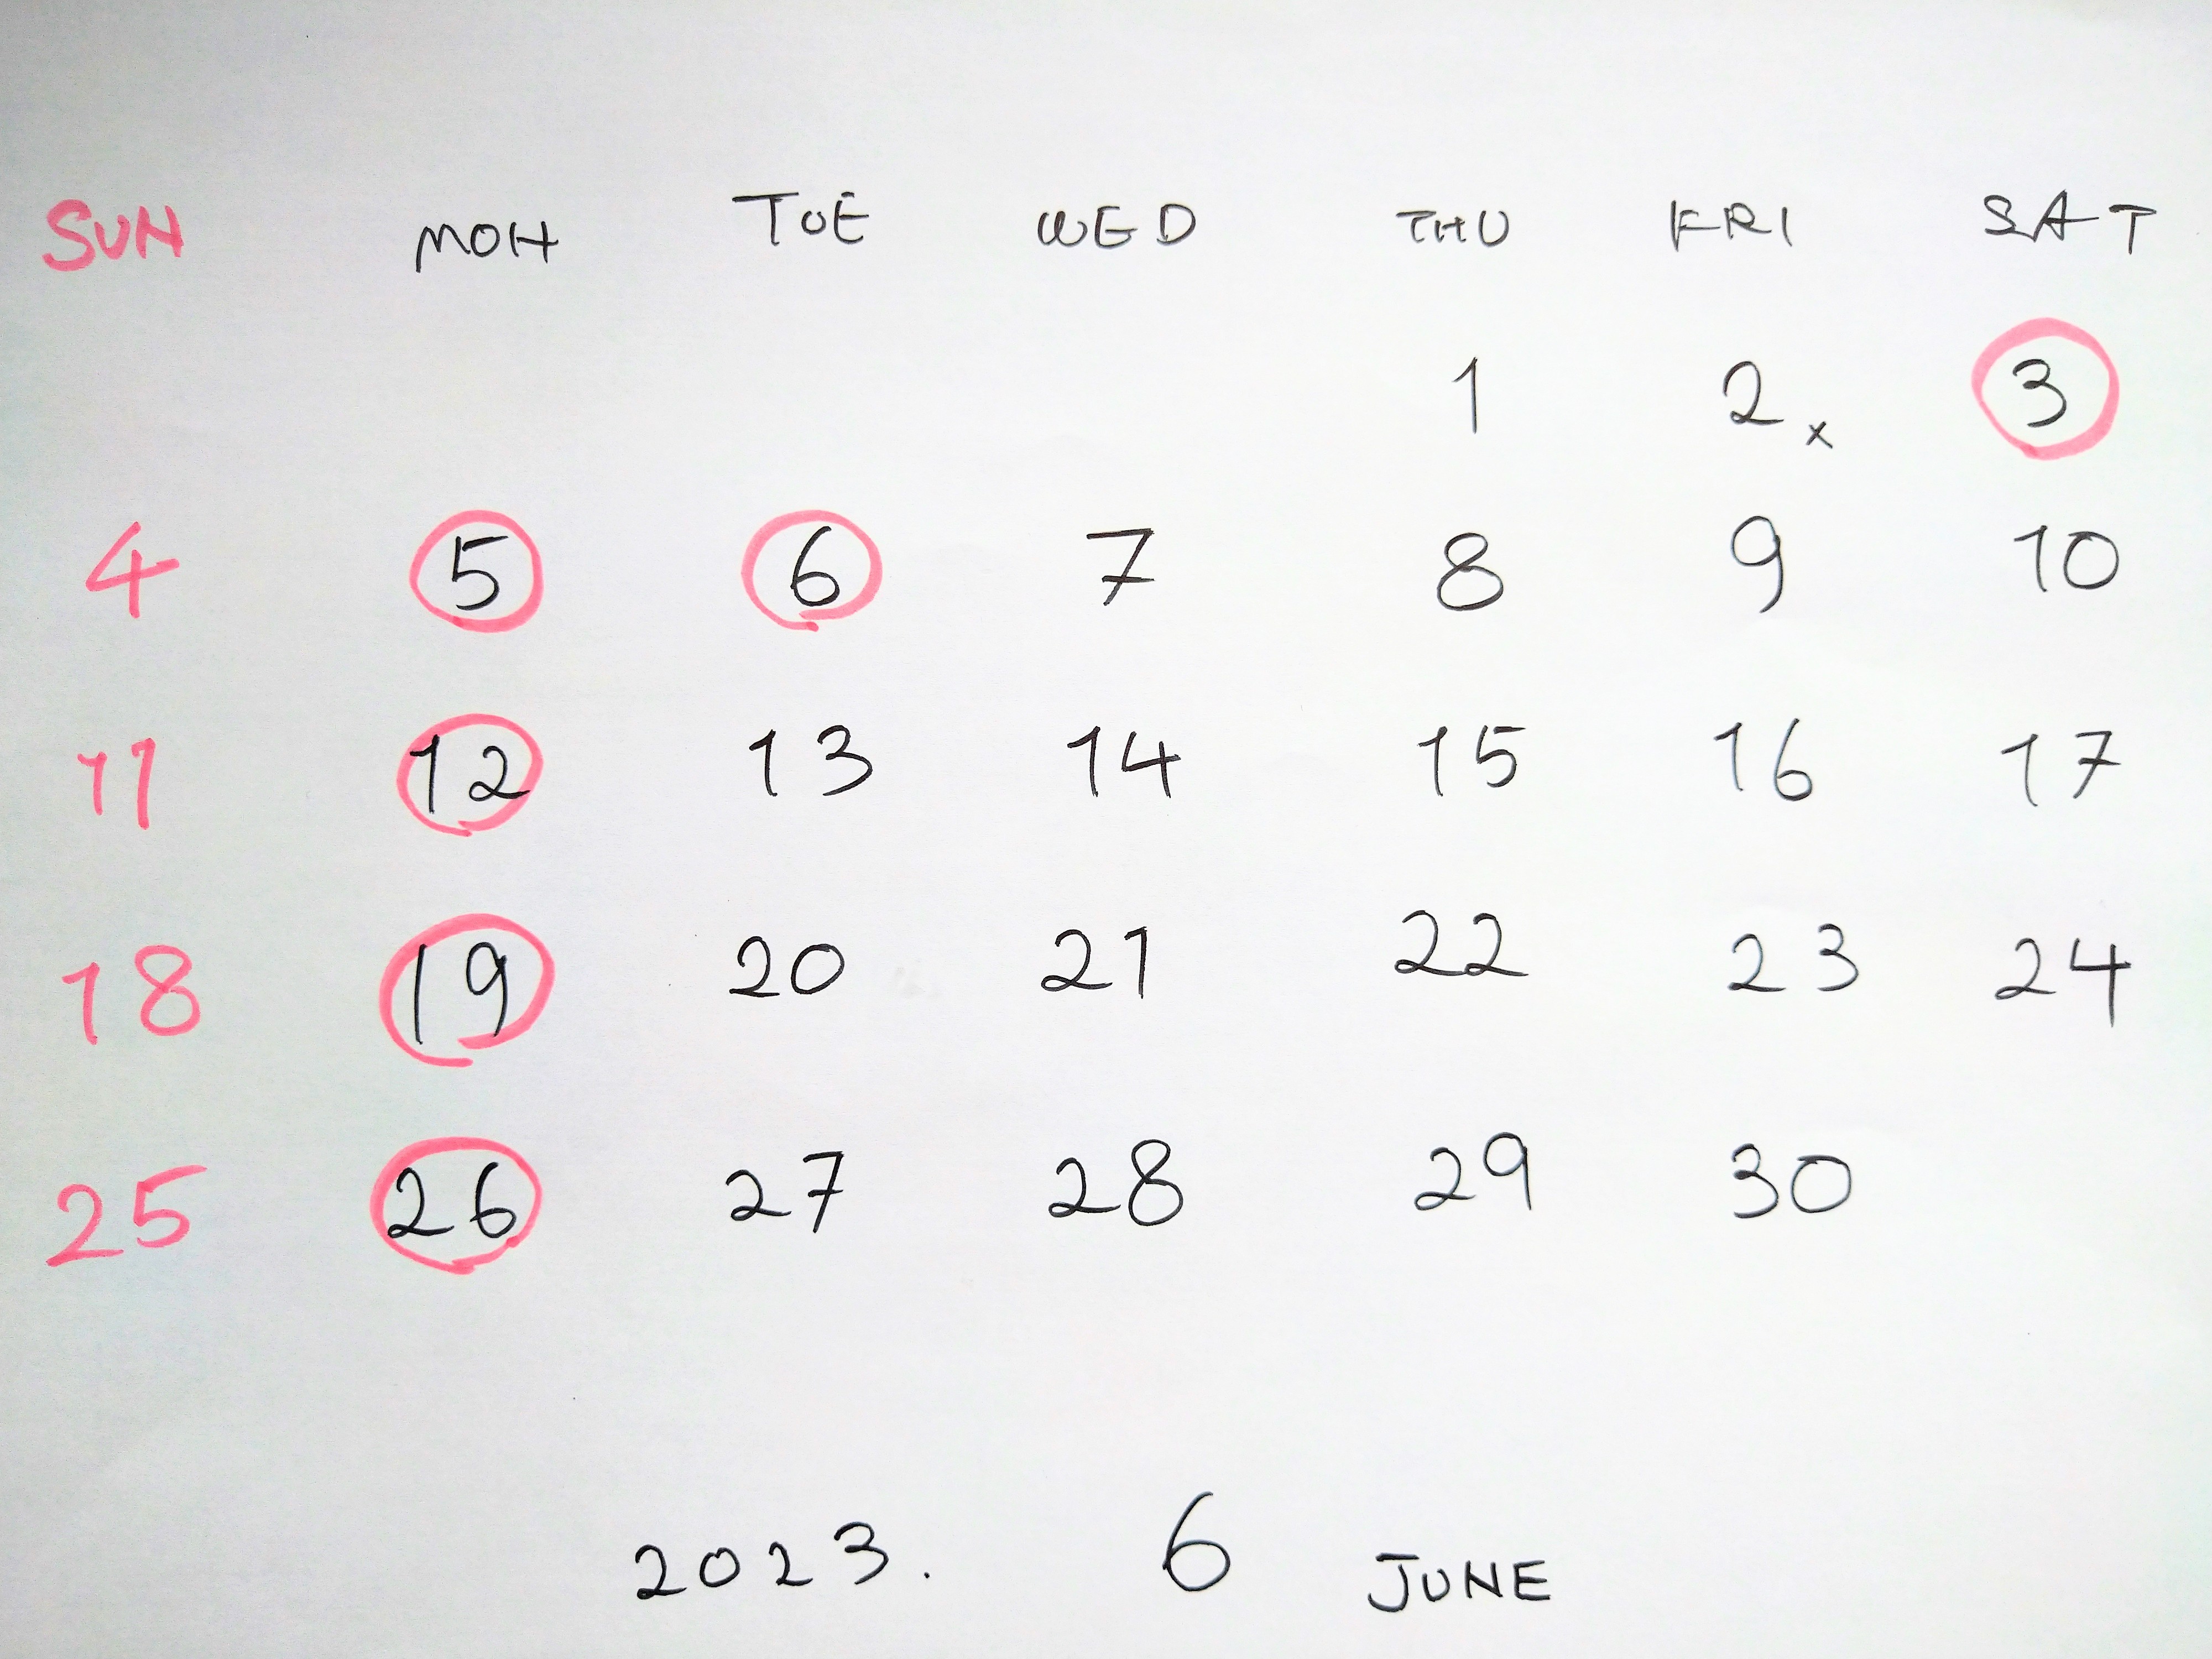 SUN MON TUE WED THU FRI SAT
1 2 x 3
4 5 6 7 8 9 10
11 12 13 14 15 16 17
18 19 20 21 22 23 24
25 26 27 28 29 30
2023. 6 JUNE